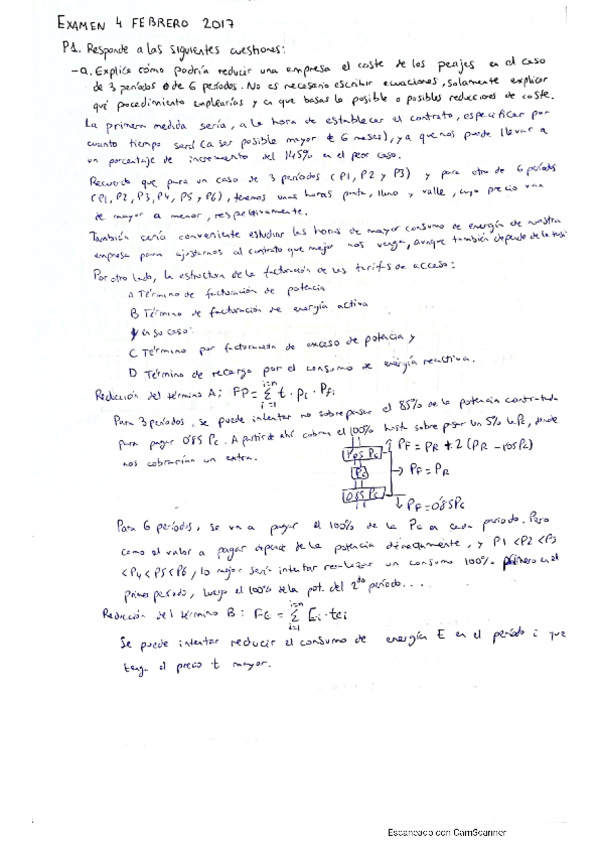 EXAMEN 4 FEBRERO 2017
P1. Responde a las siguientes cuestiones:
-a. Explica cómo podría reducir una empresa el coste de los peajes en el caso
de 3 períodos o de 6 períodos. No es necesario escribir ecuaciones, solamente explicar
qué procedimiento emplearías y en que basas la posible o posibles reducciones de coste.
La primera medida sería, a la hora de establecer el contrato, especificar por
cuanto tiempo será (a ser posible mayor 6 meses), ya que nos puede llevar a
un porcentaje de incremento del 145% en el peor caso.
Recuerdo que para un caso de 3 períodos (P1, P2 y P3) y para otro de 6 períodos
(P1, P2, P3, P4, P5 y P6), tenemos unas horas punta, llano y valle, cuyo precio va
de mayor a menor, respectivamente.
También sería conveniente estudiar las horas de mayor consumo de energía de nuestra
empresa para ajustarnos al contrato que mejor nos venga, aunque también depende de la
Por otro lado, la estructura de la facturación de las tarifas de acceso:
A Término de facturación de potencia
B Término de facturación de energía activa
y en su caso:
C Término por facturación de exceso de potencia y
D Término de recargo por el consumo de energía reactiva.
Reducción del término A: FP = Σ t · Pi · Pfi
i=n
i=1
Para 3 períodos, se puede intentar no sobrepasar el 85% de la potencia contratada
para pagar 0'85 Pc. A partir de ahí cobran el 100% hasta sobre pasar un 5% la Pc, donde
nos cobrarían un extra.
1'05 Pc
PF = PR + 2 (PR - 105P2)
Pc
PF = PR
0'85 Pc
PF = 0'85Pc
Para 6 períodos, se va a pagar el 100% de la Pc en cada período. Pero
como el valor a pagar depende de la potencia directamente, y P1 < P2 < P3
< P4 < P5 < P6, lo mejor sería intentar realizar un consumo 100% primero en el
primer período, luego el 100% de la pot. del 2do período...
Reducción del término B: FE = Σ Ei · tei
i=n
i=1
Se puede intentar reducir el consumo de energía E en el período i que
tenga el precio t mayor.
Escaneado con CamScanner